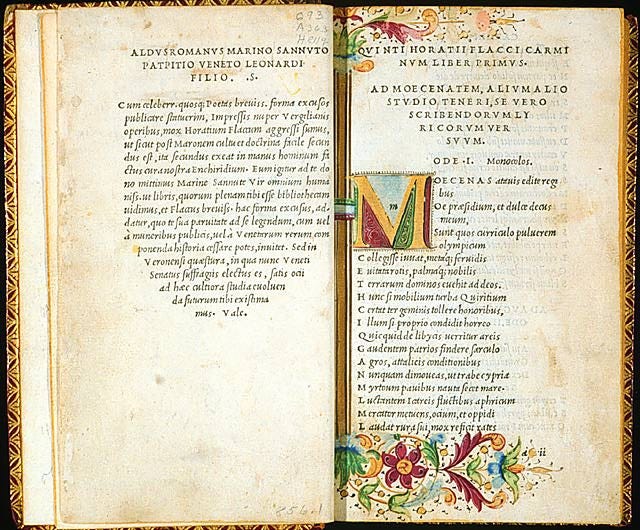 ALDVS ROMANVS MARINO SANNVTO
PATPITIO VENETO LEONARDI
FILIO. .S.
Cum celeberr. quosq; Poetas breuiss. forma excusos
publicare statuerim, Impressis nuper Vergilianis
operibus, mox Horatium Flaccum aggressi sumus,
ut sicut post Maronem cultu et doctrina facile secun
dus est, ita secundus exeat in manus hominum fa
ctus cura nostra Enchiridion. Eum igitur ad te do
no mittimus Marine Sannute Vir omnium huma
niss. ut libris, quorum plenam tibi esse bibliothecam
uidimus, et Flaccus breuiss. hac forma excusus, ad-
datur, quo te sua paruitate ad se legendum, cum uel
à muneribus publicis, uel à Venetarum rerum com
ponenda historia cessare potes, inuitet. Sed in
Veronensi quæstura, in qua nunc Veneti
Senatus suffragiis electus es, satis ocii
ad hæc cultiora studia euoluen
da futurum tibi existima
mus. Vale.
256.1
QVINTI HORATII FLACCI CARMI
NVM LIBER PRIMVS.
AD MOECENATEM, ALIVM ALIO
STVDIO TENERI, SE VERO
SCRIBENDORVM LY
RICORVM VER
SVVM.
ODE .I. Monocolos.
M OECENAS atauis edite regi
bus
O et præsidium, et dulce decus
meum,
Sunt quos curriculo puluerem
olympicum
C ollegisse iuuat, metaq; feruidis
E uitata rotis, palmaq; nobilis
T errarum dominos euehit ad deos.
H unc si mobilium turba Quiritium
C ertat tergeminis tollere honoribus,
I llum si proprio condidit horreo
Q uicquid de libycis uerritur areis
G audentem patrios findere sarculo
A gros, attalicis conditionibus
N unquam dimoueas, ut trabe cypria
M yrtoum pauidus nauta secet mare.
L uctantem Icareis fluctibus aphricum
M ercator metuens, ocium, et oppidi
L audat rura sui, mox reficit rates
a ii